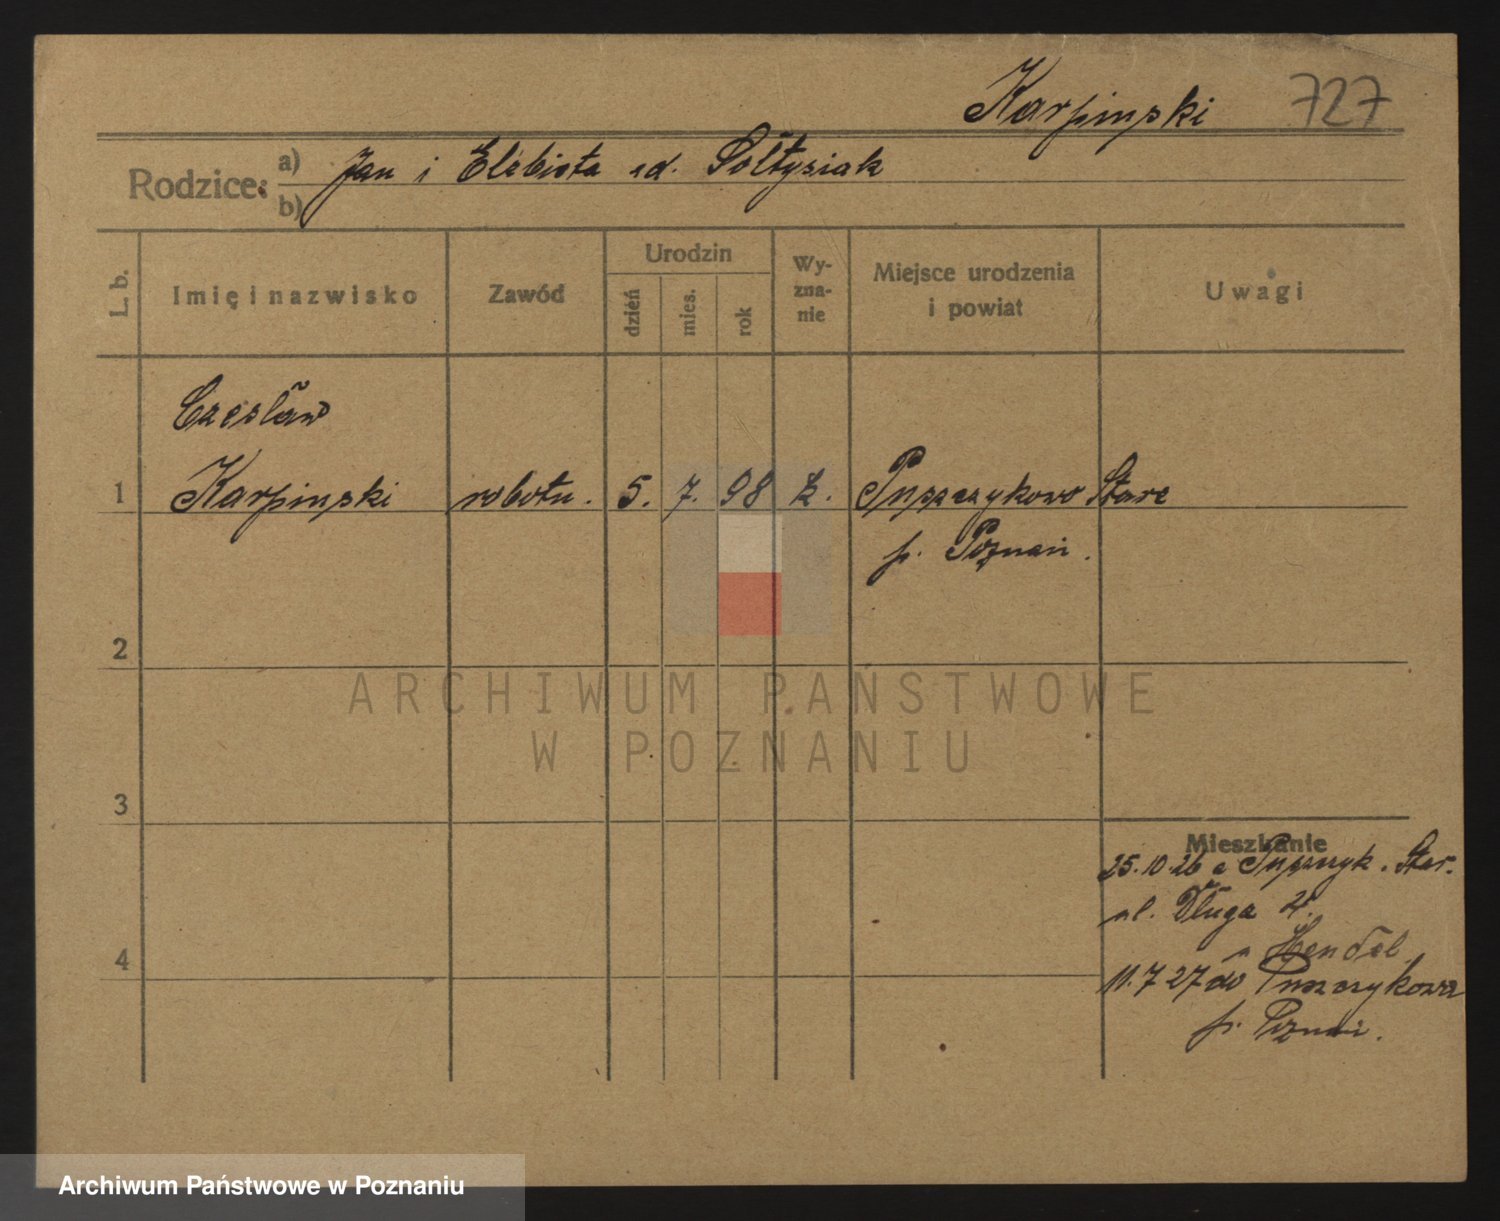 Karpinski 727
Rodzice: a) Jan i Elzbieta zd. Sołtysiak
b)
L. b.
Imię i nazwisko
Zawód
Urodzin
dzień
mies.
rok
Wy-
zna-
nie
Miejsce urodzenia
i powiat
Uwagi
Czesław
1 Karpinski robotn. 5. 7. 98 k. Puszczykowo Stare
p. Poznań.
2
ARCHIWUM PAŃSTWOWE
W POZNANIU
3
Mieszkanie
25.10.26 z Puszczyk. Star.
ul. Długa
4
11.7 27 do Puszczykowa
p. Poznań.
Archiwum Państwowe w Poznaniu